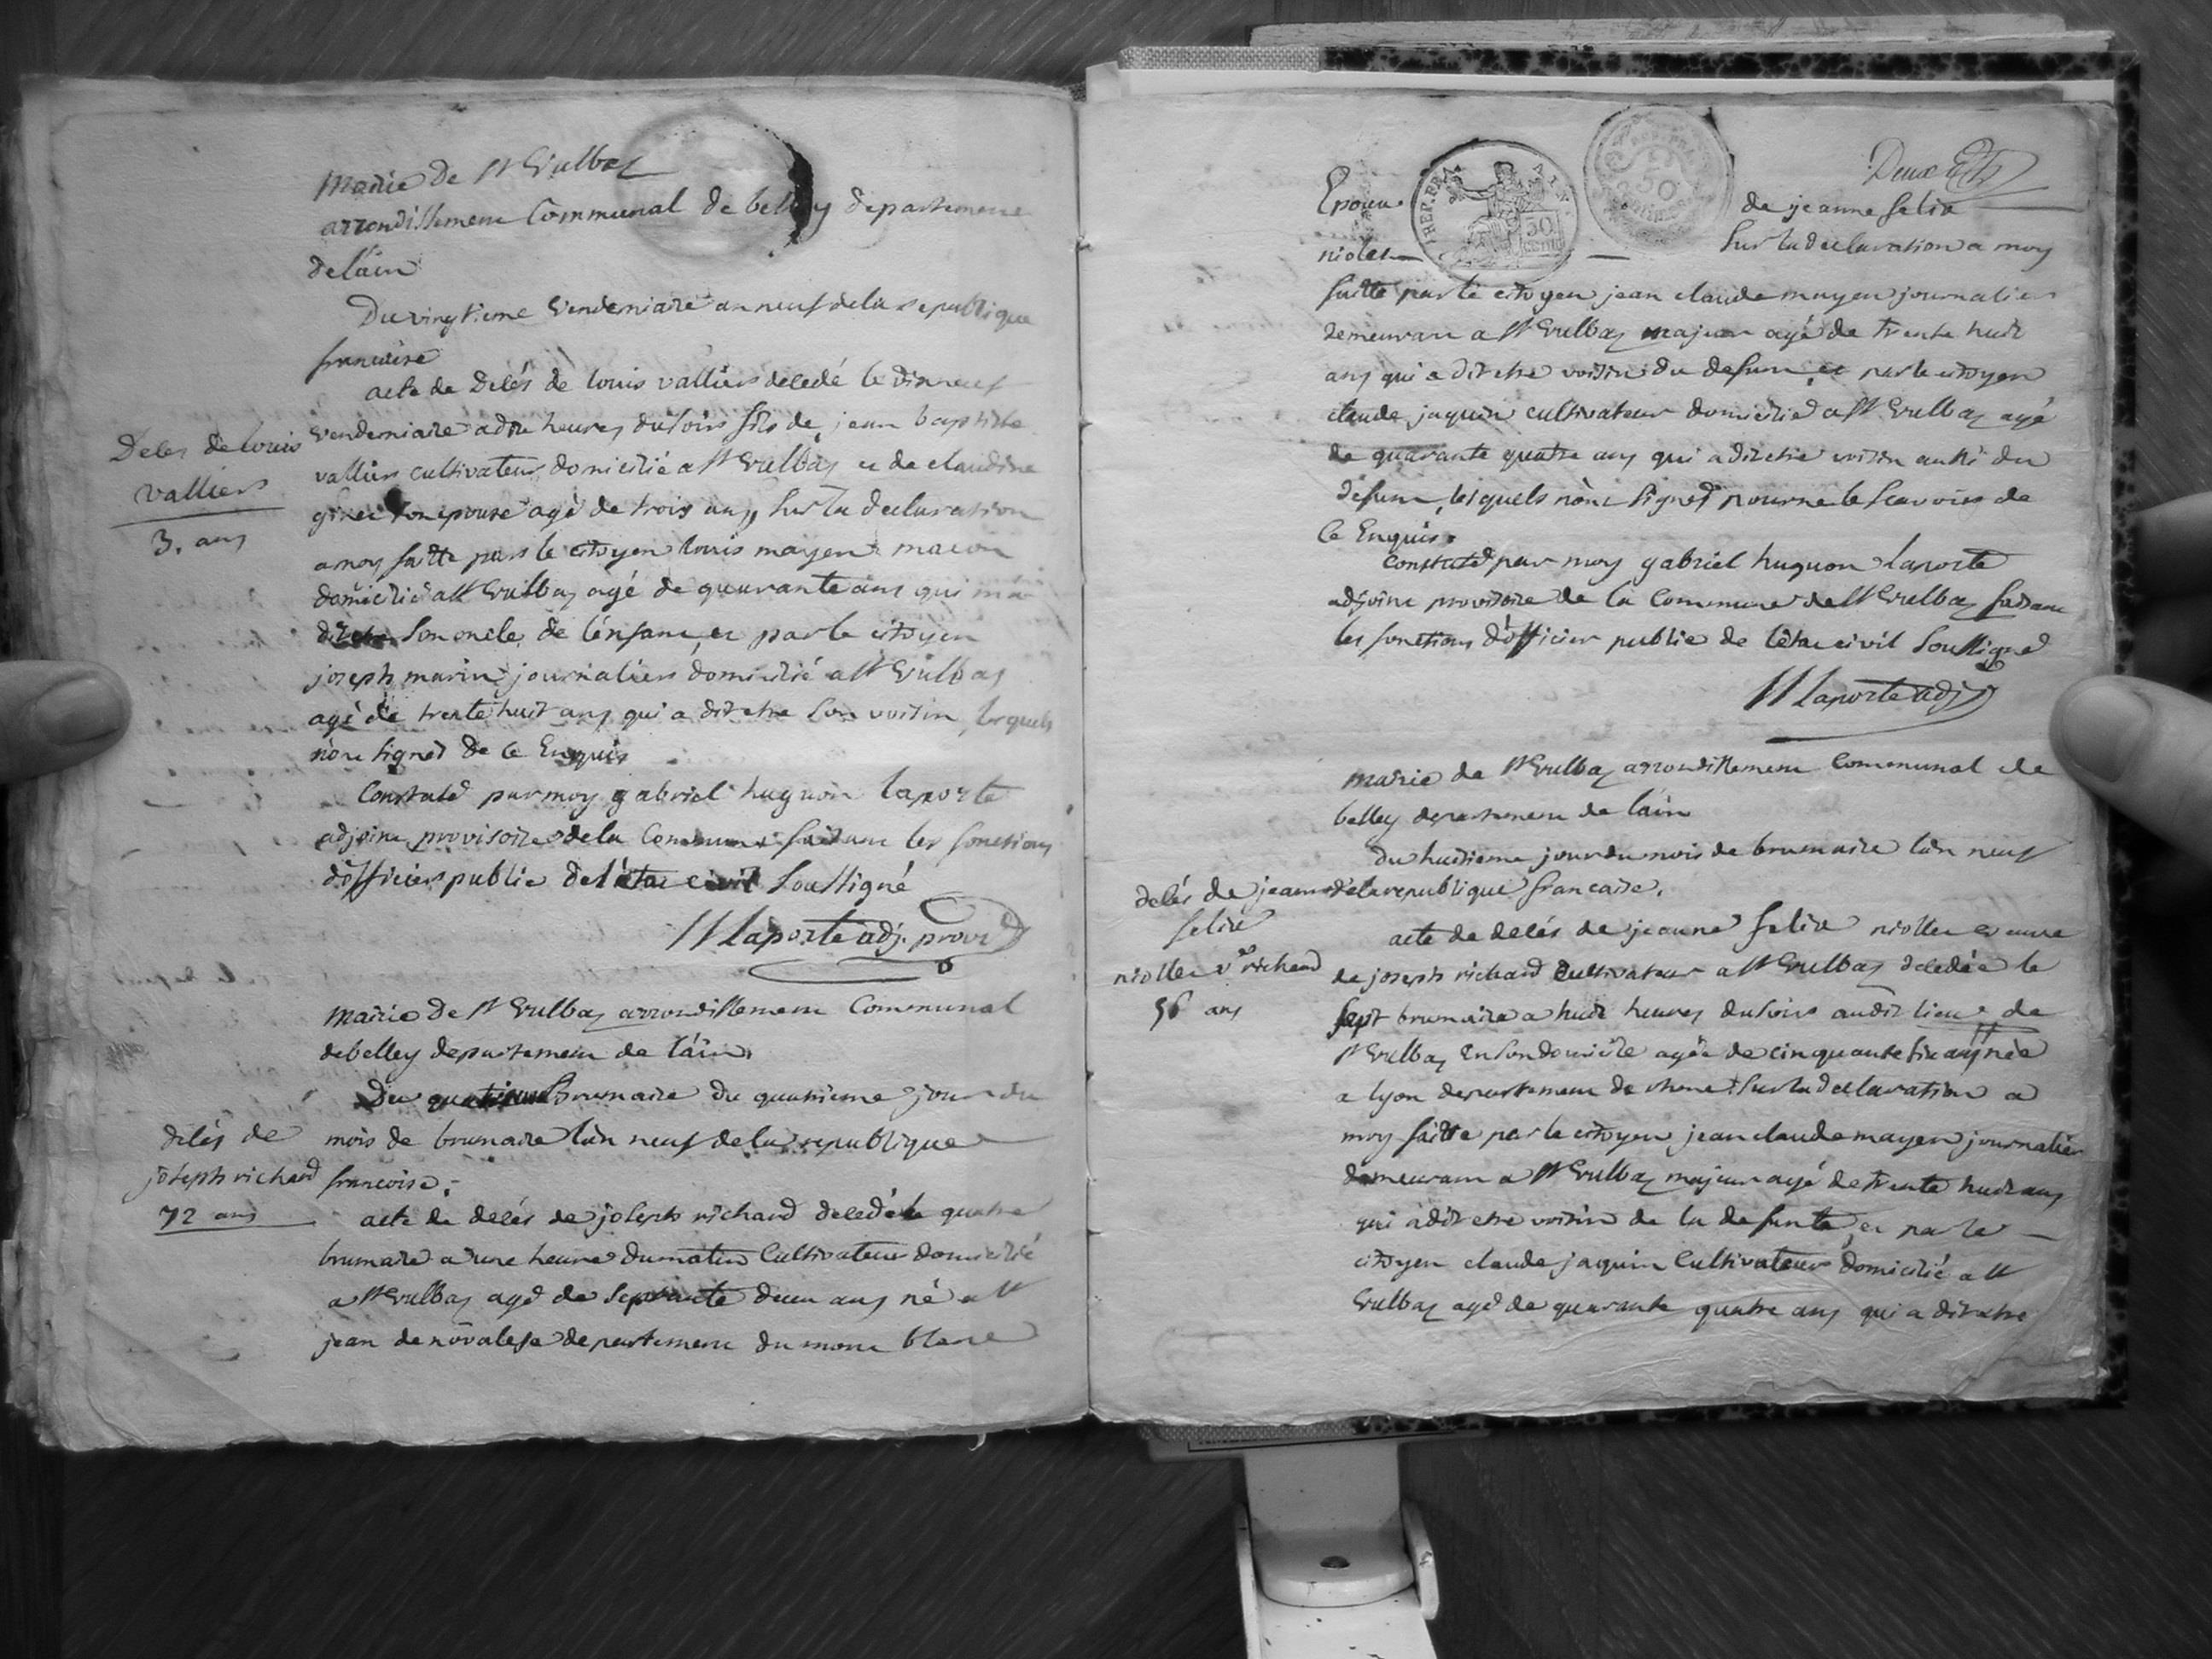 Mairie de St Vulbas
arrondissement Communal de belley departement
de láin
Du vingtieme vendemiaire an neuf de la republique
francaise
acte de Délés de louis valliers deledé le dixneuf
Delés de louis
valliers
3. ans
vendemiaire a dix heures du soir fils de jean baptiste
valliers cultivateur domicilié a St Vulbas et de claudine
son epouse agé de trois ans, sur la declaration
a moy faitte par le citoyen louis mayen macon
domicilié a St Vulbas agé de quarante ans qui m'a
dit etre son oncle de l'énfant, et par le citoyen
joseph marin journaliers domicilié a St Vulbas
agé de trente huit ans qui a dit etre son voisin, lesquels
n'ont signés de ce Enquis
Constaté par moy gabriel huguon laporte
adjoint provisoire de la Commune faisant les fonctions
d'officiers public de l'état civil Soussigné
H laporte adj. provi
Mairie de St Vulbas arrondissement Communal
de belley departement de láin
Du quatrieme Brumaire du quatrieme jour du
delés de
joseph richard
72 ans
mois de brumaire l'an neuf de la republique
francoise;
acte de delés de joseph richard deledé le quatre
brumaire a une heure du matin Cultivateur domicilié
a St Vulbas agé de septante deux ans né a St
jean de novalese departement du mont blanc
Deux
Epoux de jeanne felix
niolet sur la declaration a moy
REP. FRA
50
faitte par le citoyen jean claude mayen journaliers
demeurant a St Vulbas majeur agé de trente huit
ans qui a dit etre voisin du defunt, et par le citoyen
claude jaquin cultivateur domicilié a St Vulbas agé
de quarante quatre ans qui a dit etre voisin aussi du
défunt, lesquels n'ont signés pour ne le scavoirs de
ce Enquis.
constaté par moy gabriel huguon laporte
adjoint provisoire de la Commune de St Vulbas faisant
les fonctions d'officier public de l'état civil Soussigné
H laporte adj
Mairie de St Vulbas arrondissement Communal de
belley departement de láin
du huitieme jour du mois de brumaire l'an neuf
delés de jeanne
felix
niollet ve richard
56 ans
de la republique francaise.
acte de delés de jeanne felix niollet veuve
de joseph richard Cultivateur a St Vulbas deledée le
sept brumaire a huit heures du soirs audit lieu de
St Vulbas En son domicile agée de cinquante six ans née
a lyon departement de rhone sur la declaration a
moy faitte par le citoyen jean claude mayen journalier
demeurant a St Vulbas majeur agé de trente huit ans
qui a dit etre voisin de la defunte, et par le
citoyen claude jaquin Cultivateur domicilié a St
Vulbas agé de quarante quatre ans qui a dit etre